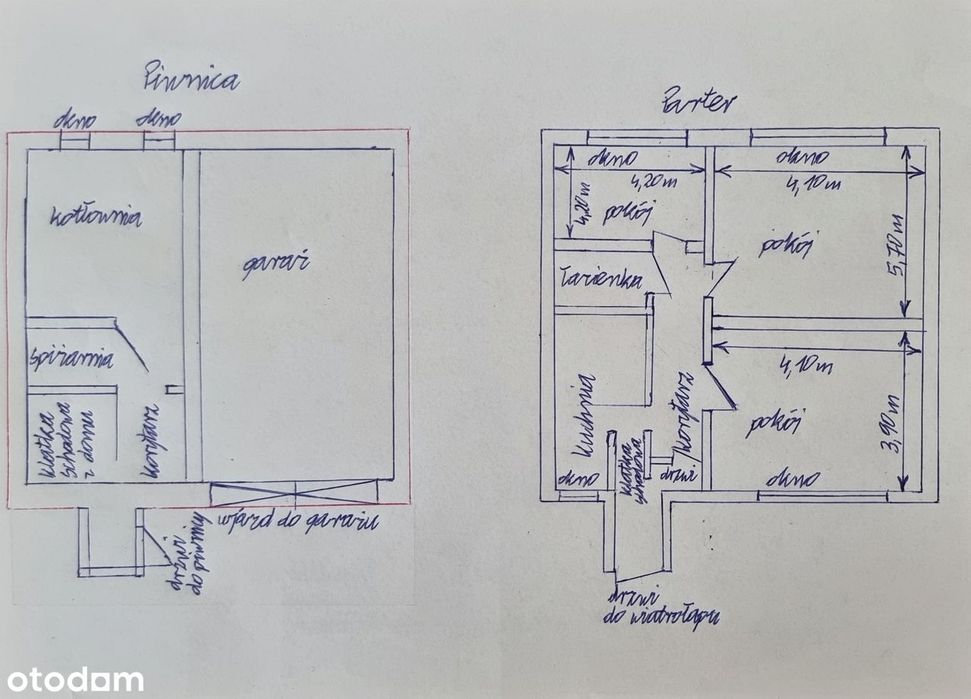 Piwnica
okno
okno
kotłownia
garaż
spiżarnia
klatka
schodowa
z domu
korytarz
wjazd do garażu
drzwi
do piwnicy
Parter
okno
okno
4,20m
4,10m
4,20m
pokój
pokój
5,70m
łazienka
4,10m
kuchnia
korytarz
pokój
3,90m
klatka
schodowa
okno
drzwi
okno
drzwi
do wiatrołapu
otodom